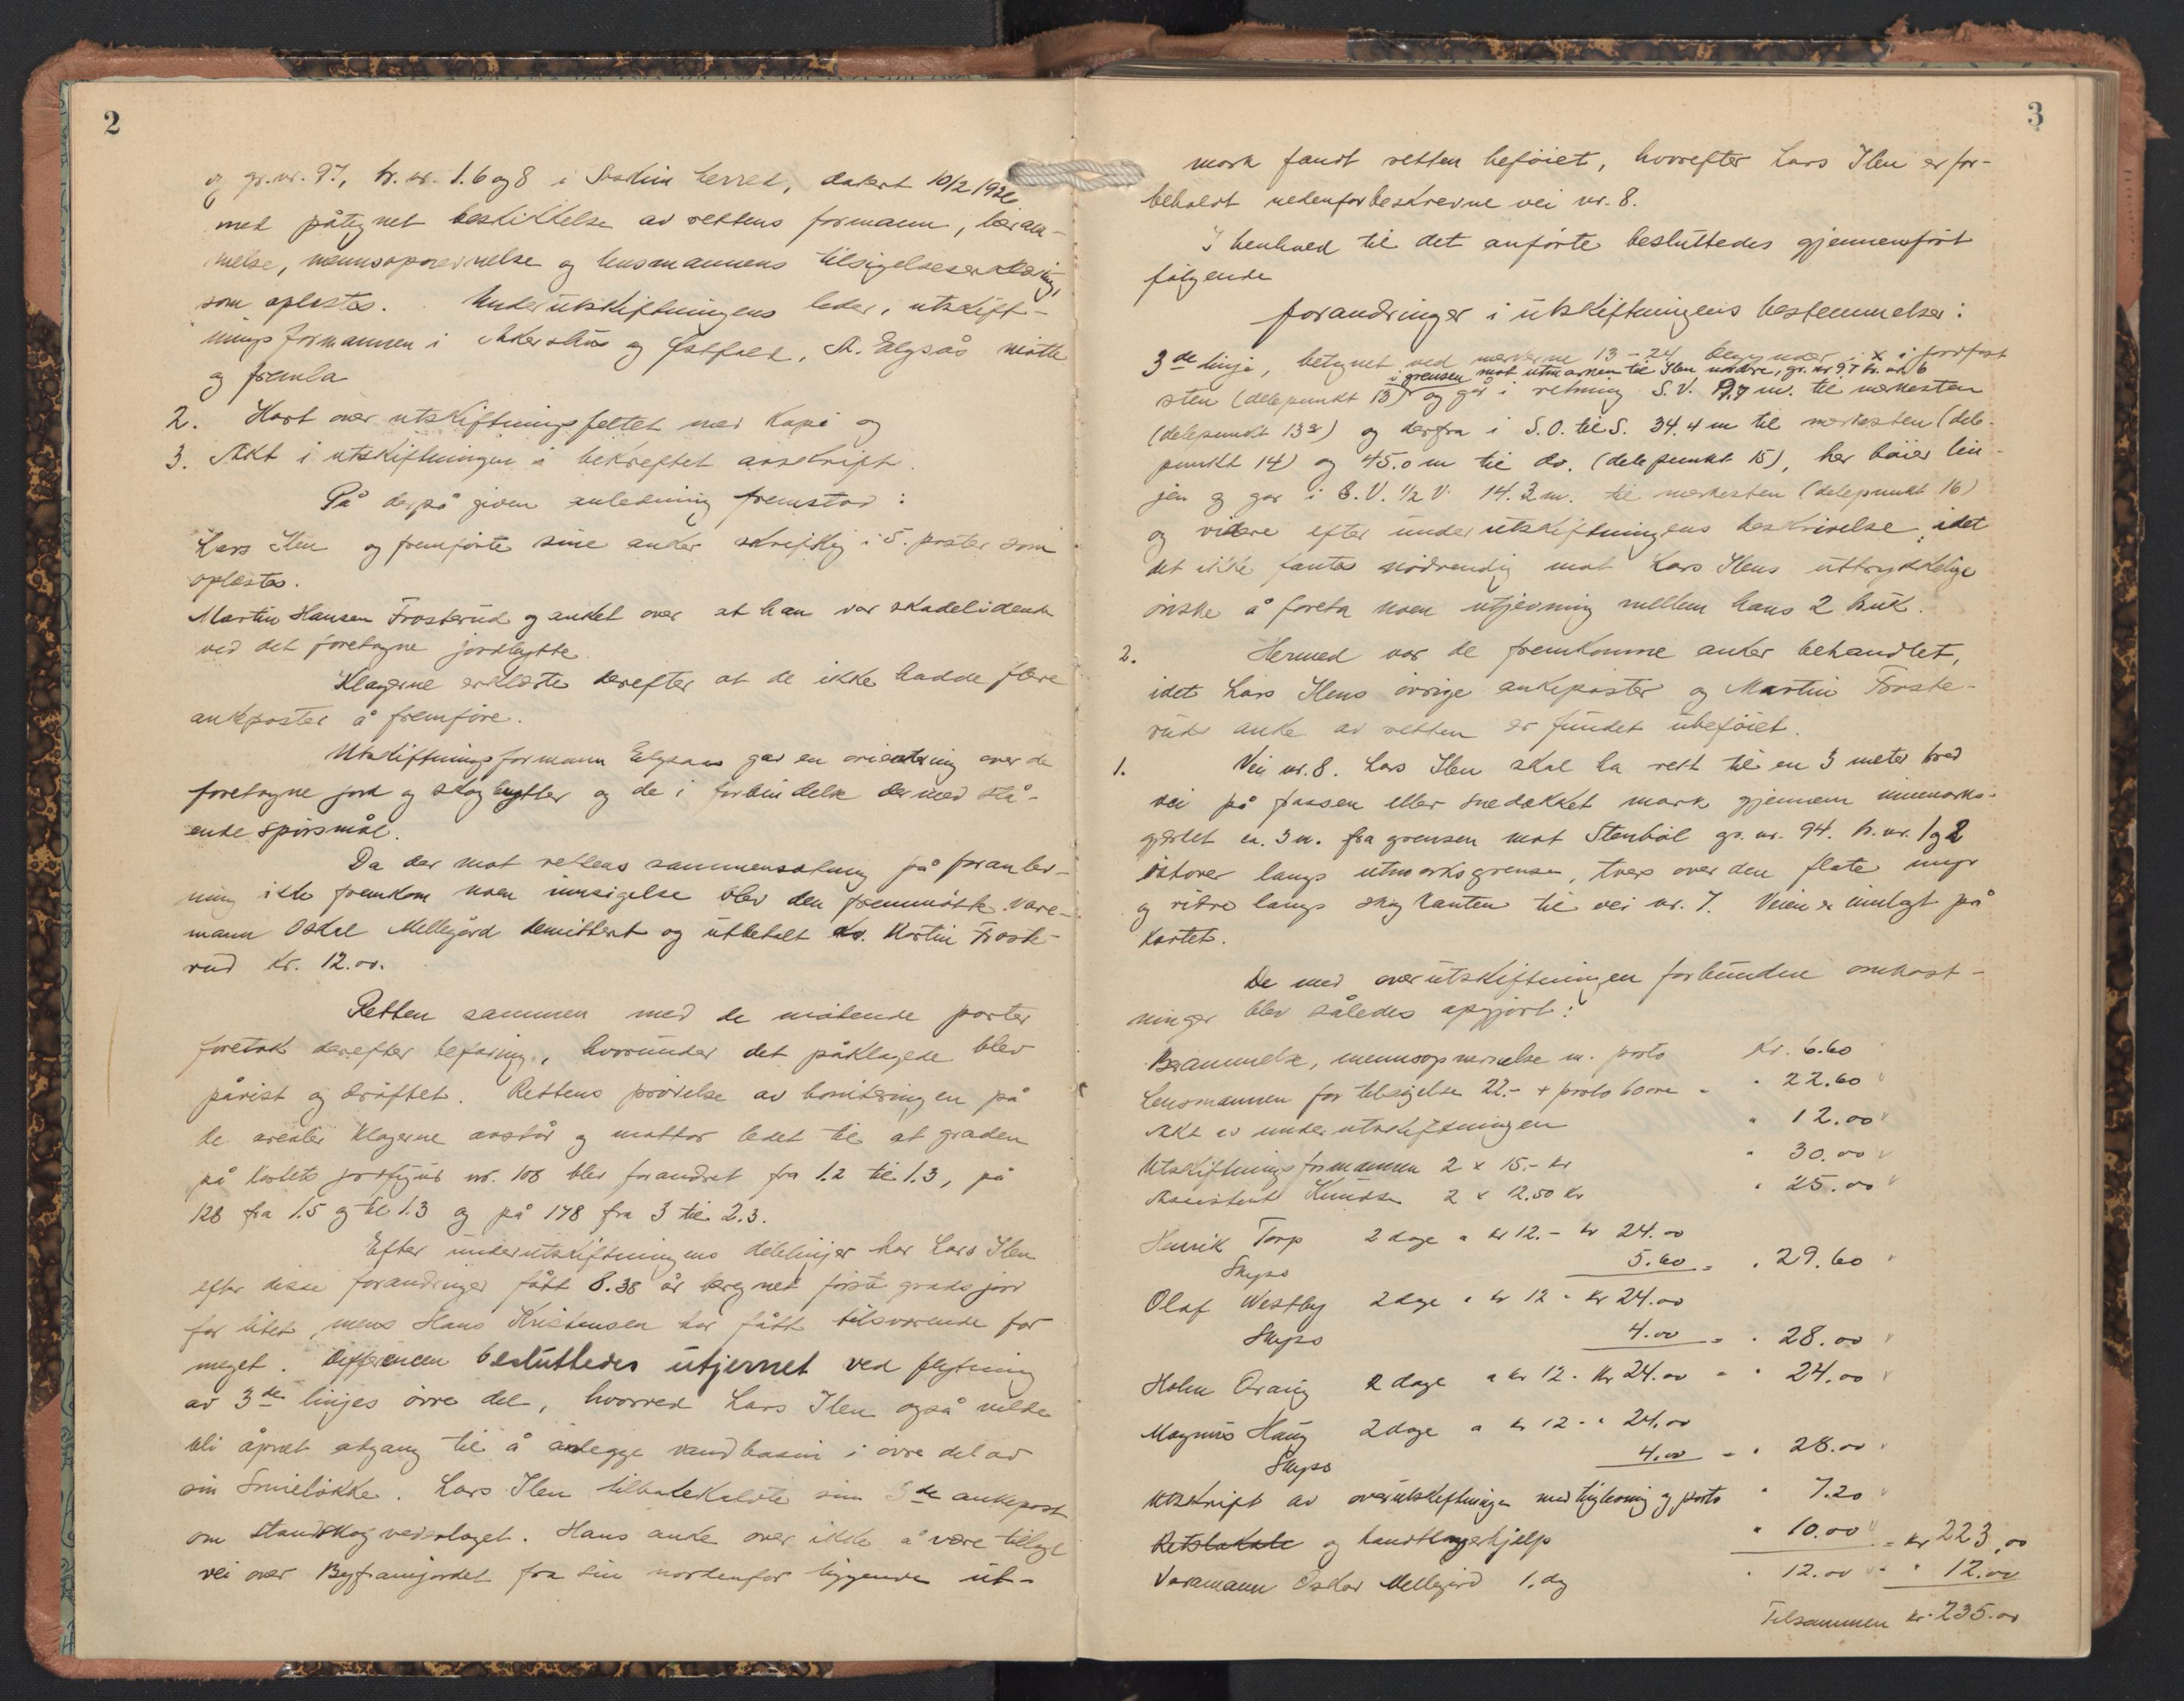 2
og gr.nr. 97, br.nr. 1. 6 og 8 i herred, datert 10/2 1926
med påtegnet beskikkelse av rettens formann, beram-
melse, mennsopnevnelse og lensmannens tilsigelseserklæring,
som oplæstes. Underutskiftningens leder, utskift-
ningsformannen i Akershus og Østfold, A. Elgsås møtte
og fremla
2. Kart over utskiftningsfeltet med Kopi og
3. Akt i utskiftningen i bekreftet avskrift.
På derpå given anledning fremstod:
Lars Ilen og fremførte sine anker skriftlig i 5. poster som
oplæstes.
Martin Hansen Frosterud og anket over at han var skadelidende
ved det foretagne jordbytte.
Klagerne erklærte derefter at de ikke hadde flere
ankeposter å fremføre.
Utskiftningsformann Elgsaas gav en orientering over de
foretagne jord og skogbytter og de i forbindelse dermed stå-
ende spørsmål.
Da der mot rettens sammensætning på foranled-
ning ikke fremkom noen innsigelse blev den fremmøtte vare-
mann Oskar Mellegård demittert og utbetalt av Martin Froste-
rud kr. 12.00.
Retten sammen med de møtende parter
foretok derefter befaring, hvorunder det påklagede blev
påvist og drøftet. Rettens prøvelse av boniteringen på
de arealer klagerne avstår og mottar ledet til at graden
på kartets jordfigur nr. 108 blev forandret fra 1.2 til 1.3, på
128 fra 1.5 og til 1.3 og på 178 fra 3 til 2.3.
Efter underutskiftningens delelinjer har Lars Ilen
efter disse forandringer fått 8.38 år beregnet første grads jord
for litet, mens Hans Kristensen har fått tilsvarende for
meget. Differencen besluttedes utjevnet ved flytning
av 3de linjes øvre del, hvorved Lars Ilen også vilde
bli åpnet adgang til å anlegge vandbasin i øvre del av
sin Smieløkke. Lars Ilen tilbakekaldte sin 3de ankepost
om Standskogvederlaget. Hans anke over ikke å være tillagt
vei over Byframjordet fra sin nordenfor liggende ut-
3
mark fandt retten beføiet, hvorefter Lars Ilen er for-
beholdt nedenforbeskrevne vei nr. 8.
I henhold til det anførte besluttedes gjennemført
følgende
forandringer i utskiftningens bestemmelser:
3de linje, betegnet ved merkerne 13-24 begynder x i jordfast
i grensen mot utmarken til Ilen nordre, gr.nr 97 br.nr 6
sten (delepunkt 13) og går i retning S.V. 19.7 m. til merkesten
(delepunkt 13a) og derfra i S.O. til S. 34.4 m til merkesten (dele-
punkt 14) og 45.0 m til do. (delepunkt 15), her bøier lin-
jen og går i S.V. 1/2 V. 14.2 m. til merkesten (delepunkt 16)
og videre efter underutskiftningens beskrivelse, idet
det ikke fantes nødvendig mot Lars Ilens uttrykkelige
ønske å foreta noen utjevning mellem hans 2 bruk.
2. Hermed var de fremkomne anker behandlet,
idet Lars Ilens øvrige ankeposter og Martin Froste-
ruds anke av retten er fundet ubeføiet.
1. Vei nr. 8. Lars Ilen skal ha rett til en 3 meter bred
vei på frossen eller snedækket mark gjennem innmarks-
gjerdet ca. 3 m. fra grensen mot Stenbøl gr.nr. 94. br.nr. 1 og 2
østover langs utmarksgrensen, tvers over den flate myr
og videre langs skogkanten til vei nr. 7. Veien er innlagt på
kartet.
De med overutskiftningen forbundne omkost-
ninger blev således opgjort:
Berammelse, mennsopnevnelse m. porto Kr. 6.60
Lensmannen for tilsigelse 22.- + porto 60 øre - " 22.60
Akt av underutskiftningen " 12.00
Utskiftningsformannen 2 x 15.- kr " 30.00
Assistent Knudsen 2 x 12.50 kr " 25.00
Henrik Torp 2 dage a kr 12.- kr 24.00
Skyss 5.60 = " 29.60
Olaf Westby 2 dage a kr 12 - kr 24.00
Skyss 4.00 = " 28.00
Holm 2 dage a kr 12. kr 24.00 = " 24.00
Magnus Haug 2 dage a kr 12 - " 24.00
Skyss 4.00 = " 28.00
Utskrift av overutskiftningen med tinglesning og porto " 7.20
Retslokale og handtlangerhjelp " 10.00 = kr 223.00
Varamann Oskar Mellegård 1. dag " 12.00 = " 12.00
Tilsammen kr. 235.00